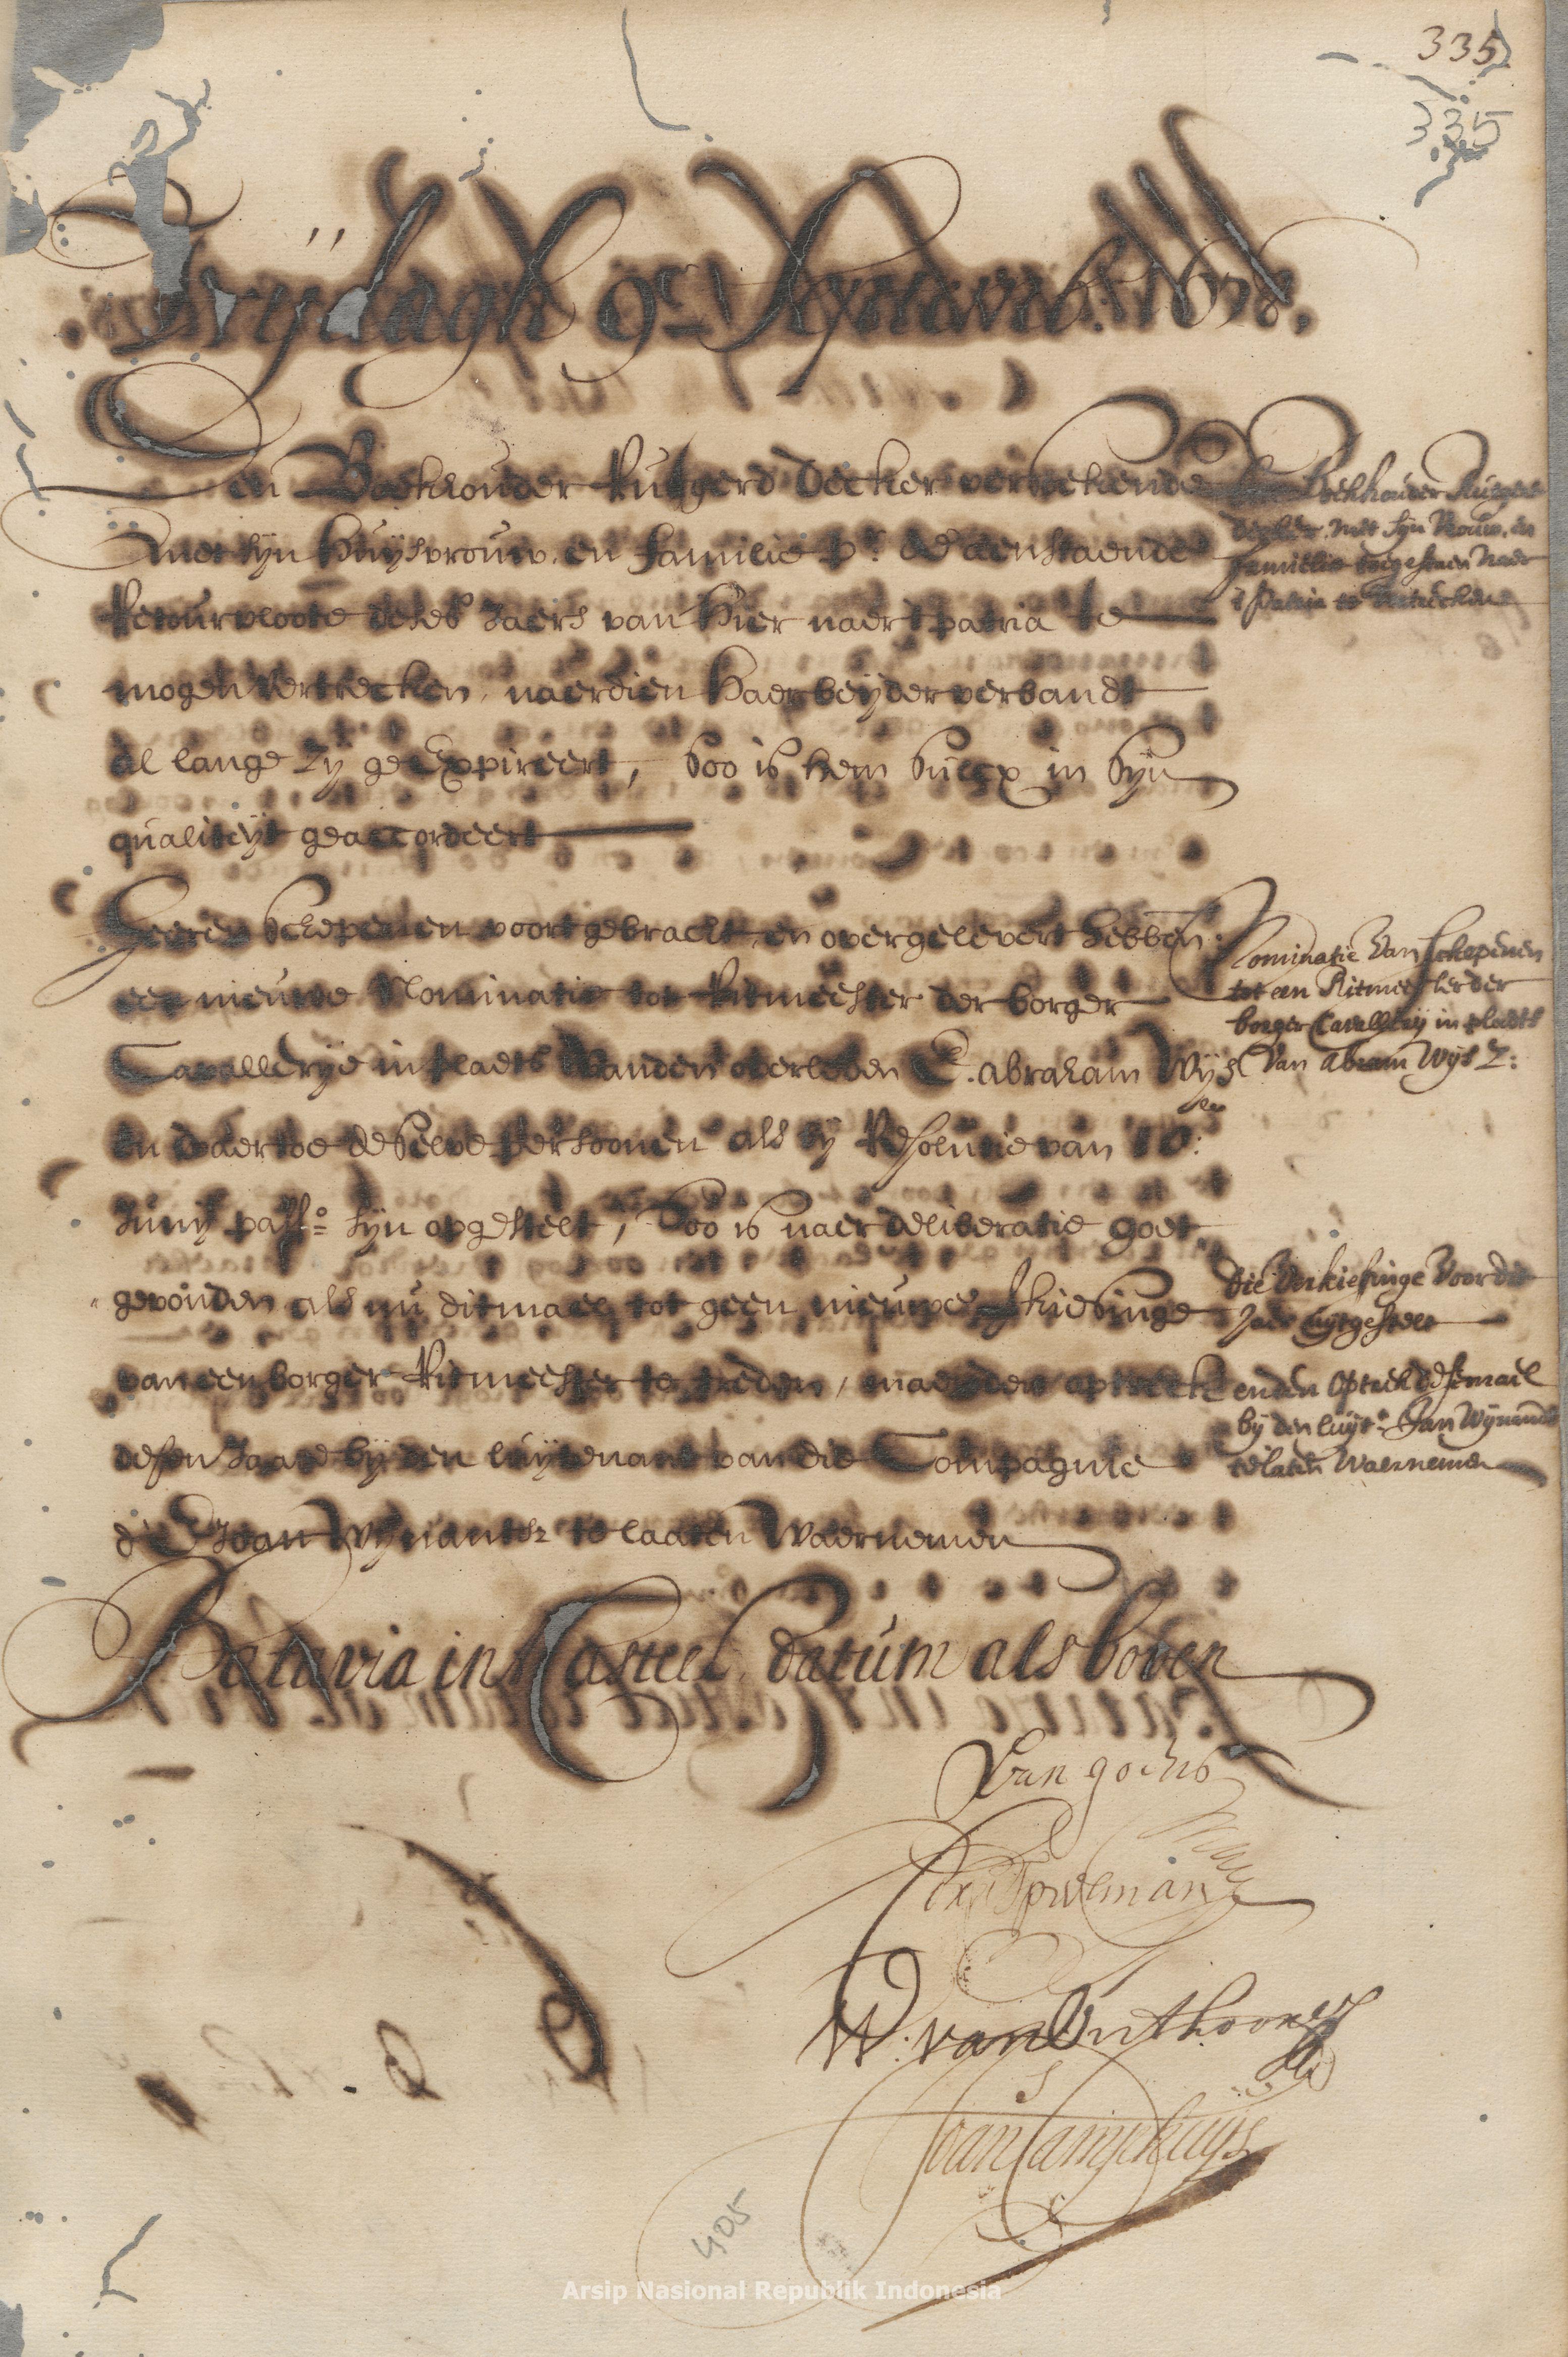 335
335
Vrijdagh 9en Xxxxx 1678.
Den Boekhouder Rutgerd Decker versoekende
met sijn Huijsvrouw en familie pr. de aenstaende
Retourvloote deses Jaers van Hier naer t patria te
mogen vertrecken, naerdien Haer beijder verbandt
al lange zij geExpireert, Soo is hem sulcx in sijn
qualiteijt geaccordeert
Den Boekhouder Rutgert
decker met sijn Vrouw en
familie toegestaen naer
t Patria te vertrecken
Heeren Schepenen voort gebracht, en overgelevert hebben
een nieuwe Nominatie tot Ritmeester der borger
Cavallerije in plaets van den overleden E. Abraham Wijs
en daertoe deselve persoonen als bij Resolutie van 10en:
Junij passo. sijn opgestelt, Soo is naer deliberatie goet
gevonden als nu ditmael tot geen nieuwe verkiesinge
van een borger Ritmeester te treden, maer den optreck
desen Jaare bij den luijtenant van die Compagnie
d'E Joan Wijnantsz te laaten waernemen
Nominatie van Schepenen
tot een Ritmeester der
borger Cavallerij in plaets
van Abram Wijs Z:
die verkiesinge voor dit
Jaer uijtgestelt
en den Optreck desemael
bij den luijt. Jan Wijnants
te laten waernemen
Batavia in't Casteel datum als boven
Van goens
Rijckloff
Speelman
W. van Outhoorn
Joan Camphuijs
405
Arsip Nasional Republik Indonesia